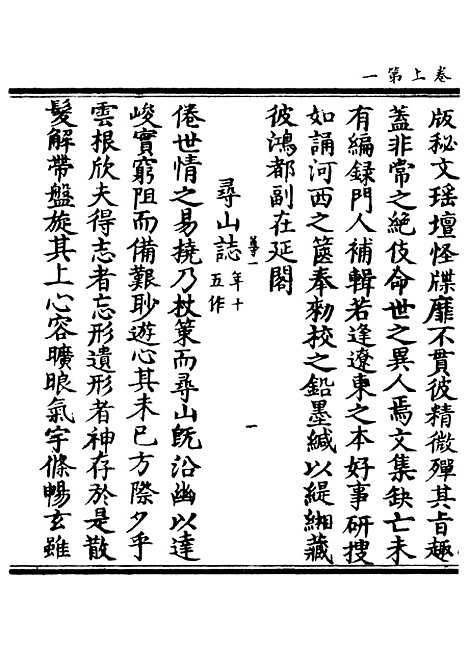 卷上第一
版秘文瑶壇怪牒靡不貫彼精微殫其旨趣
蓋非常之絶伎命世之異人焉文集缺亡未
有編録門人補輯若逢遼東之本好事研搜
如誦河西之篋奉勑校之鉛墨緘以緹緗藏
彼鴻都副在延閣
尋山誌年十五作
尊一
一
倦世情之易撓乃杖策而尋山既沿幽以達
峻實窮阻而備艱眇遊心其未已方際夕乎
雲根欣夫得志者忘形遺形者神存於是散
髮解帶盤旋其上心容曠朗氣宇條暢玄雖